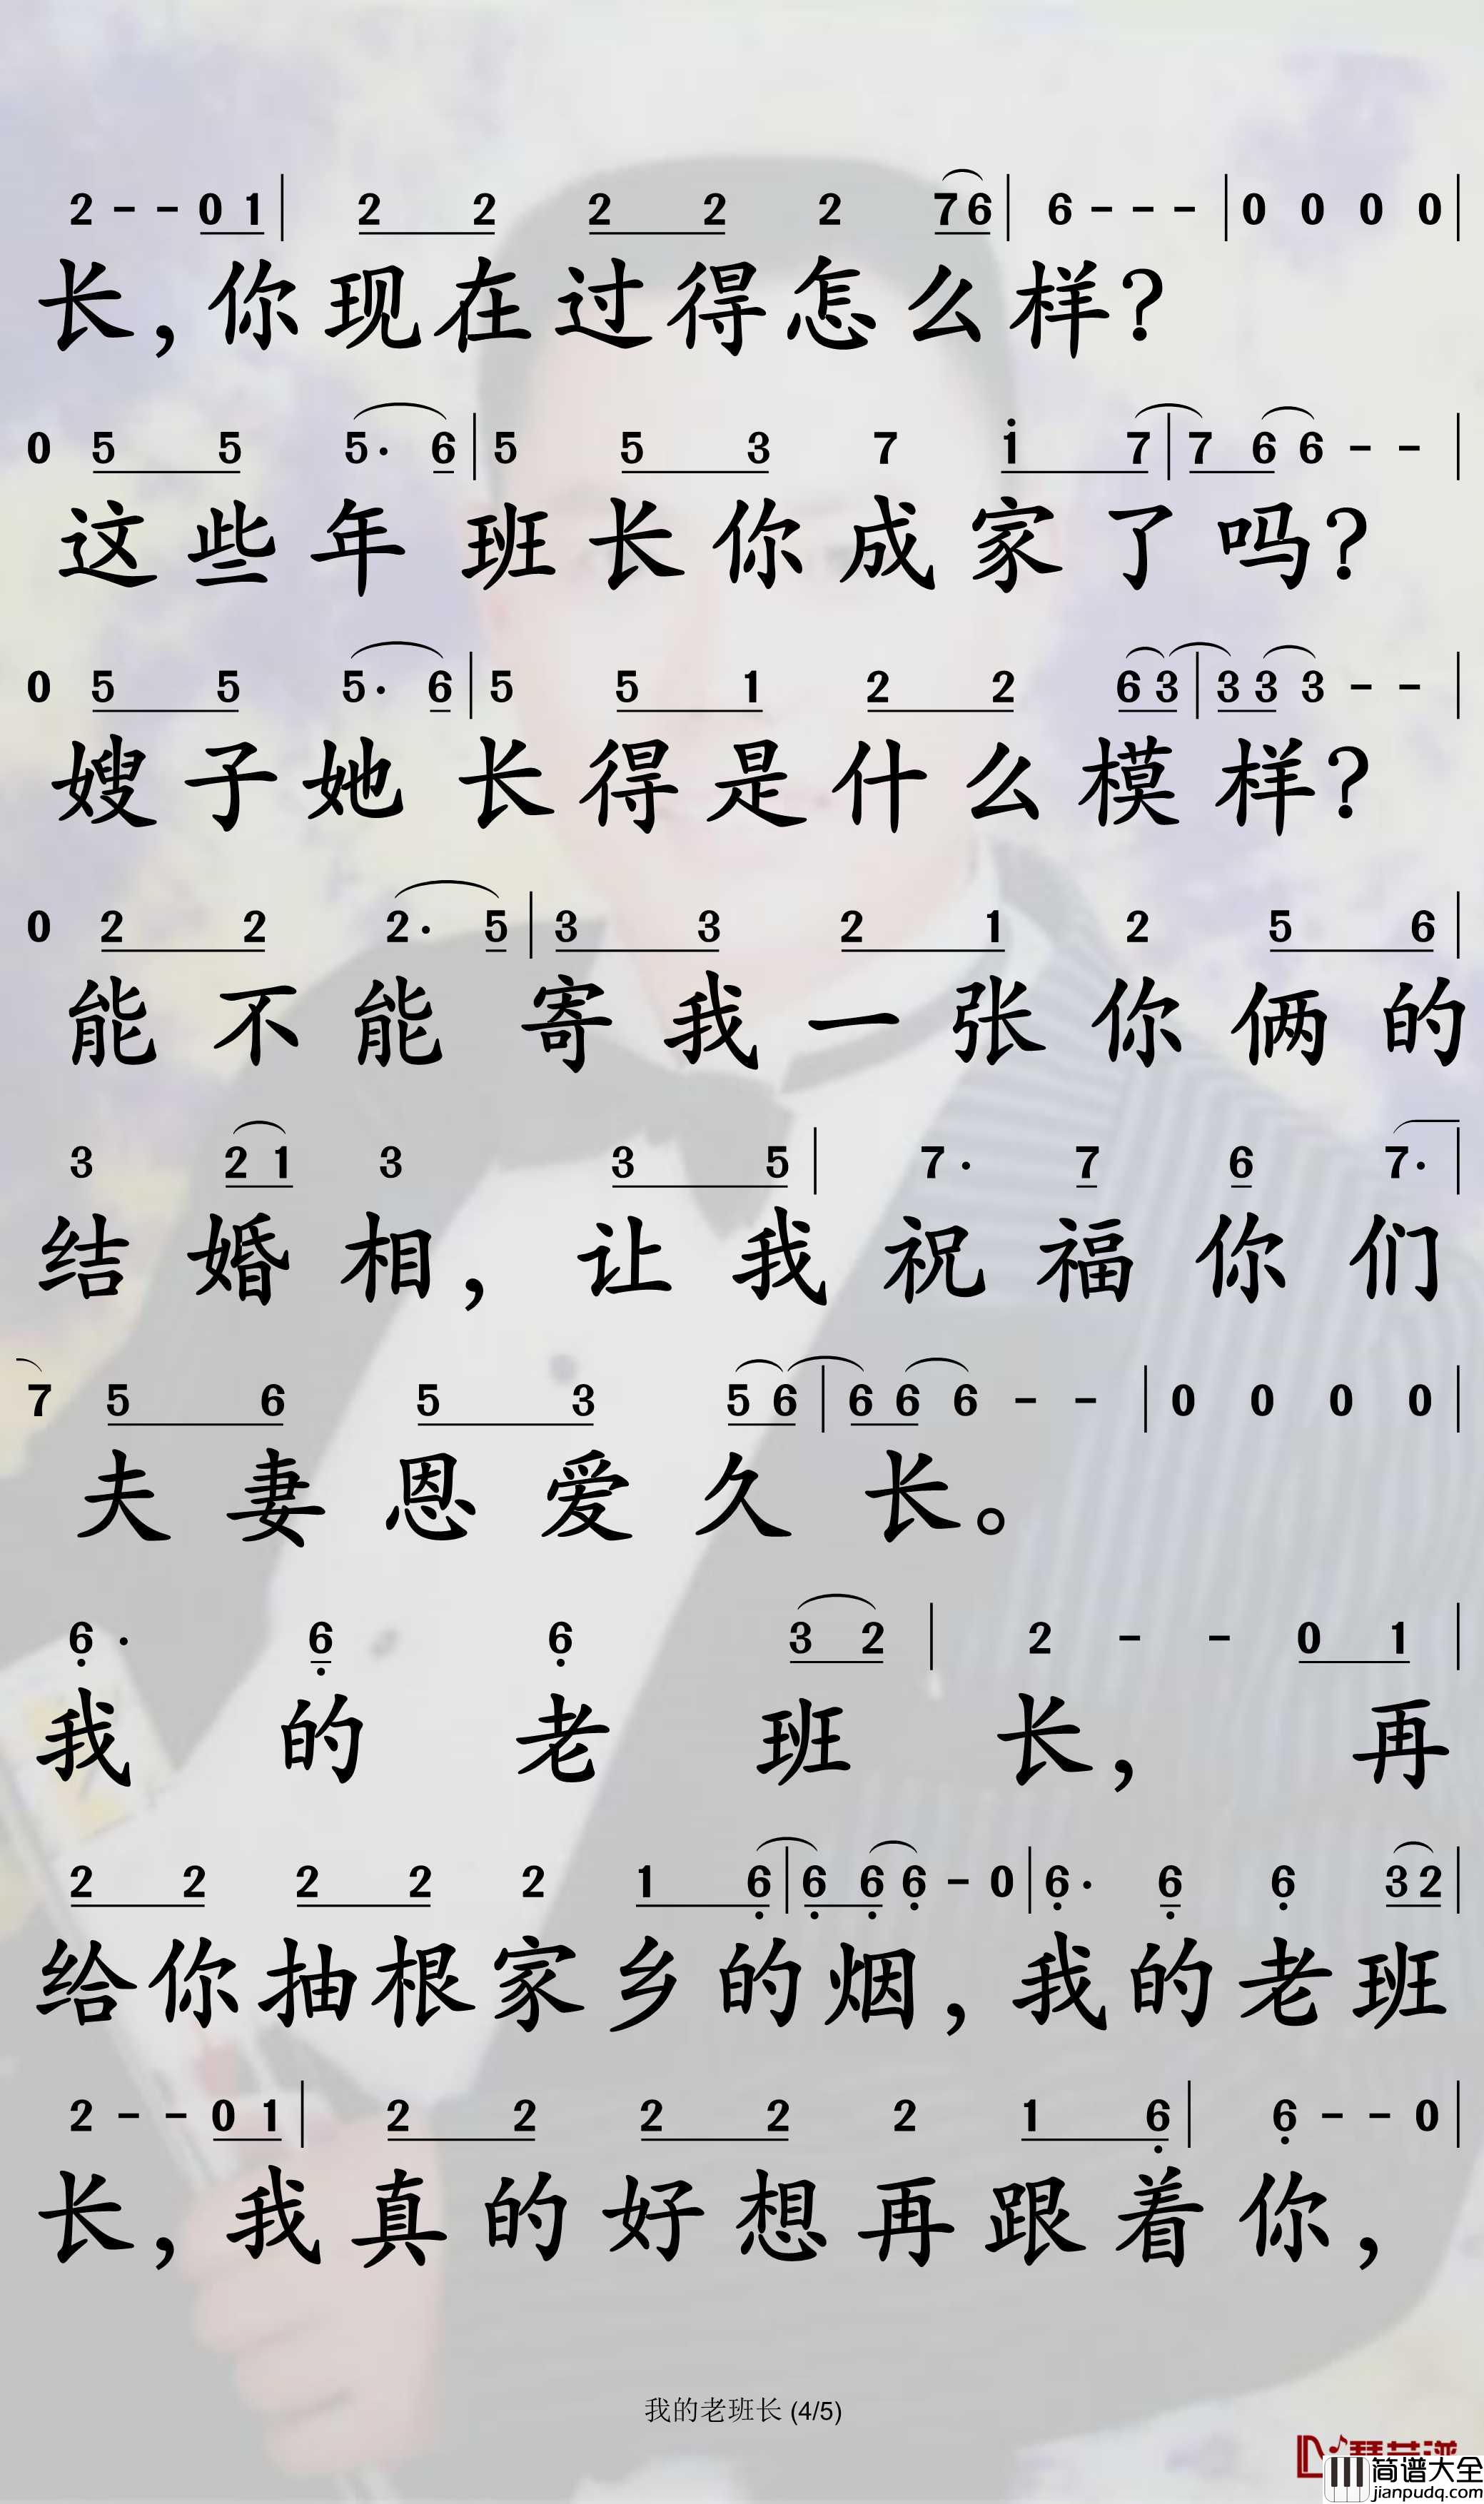 2 - - 0 1 | 2 2 2 2 2 7 6 | 6 - - - | 0 0 0 0 |
长，你现在过得怎么样？
0 5 5 5· 6 | 5 5 3 7 i 7 | 7 6 6 - - |
这些年班长你成家了吗？
0 5 5 5· 6 | 5 5 1 2 2 6 3 | 3 3 3 - - |
嫂子她长得是什么模样？
0 2 2 2· 5 | 3 3 2 1 2 5 6 |
能不能寄我一张你俩的
3 2 1 3 3 5 | 7· 7 6 7· |
结婚相，让我祝福你们
7 5 6 5 3 5 6 | 6 6 6 - - | 0 0 0 0 |
夫妻恩爱久长。
6· 6 6 3 2 | 2 - - 0 1 |
我的老班长，再
2 2 2 2 2 1 6 | 6 6 6 - 0 | 6· 6 6 3 2 |
给你抽根家乡的烟，我的老班
2 - - 0 1 | 2 2 2 2 2 1 6 | 6 - - 0 |
长，我真的好想再跟着你，
我的老班长 (4/5)
简谱大全
jianpudq.com